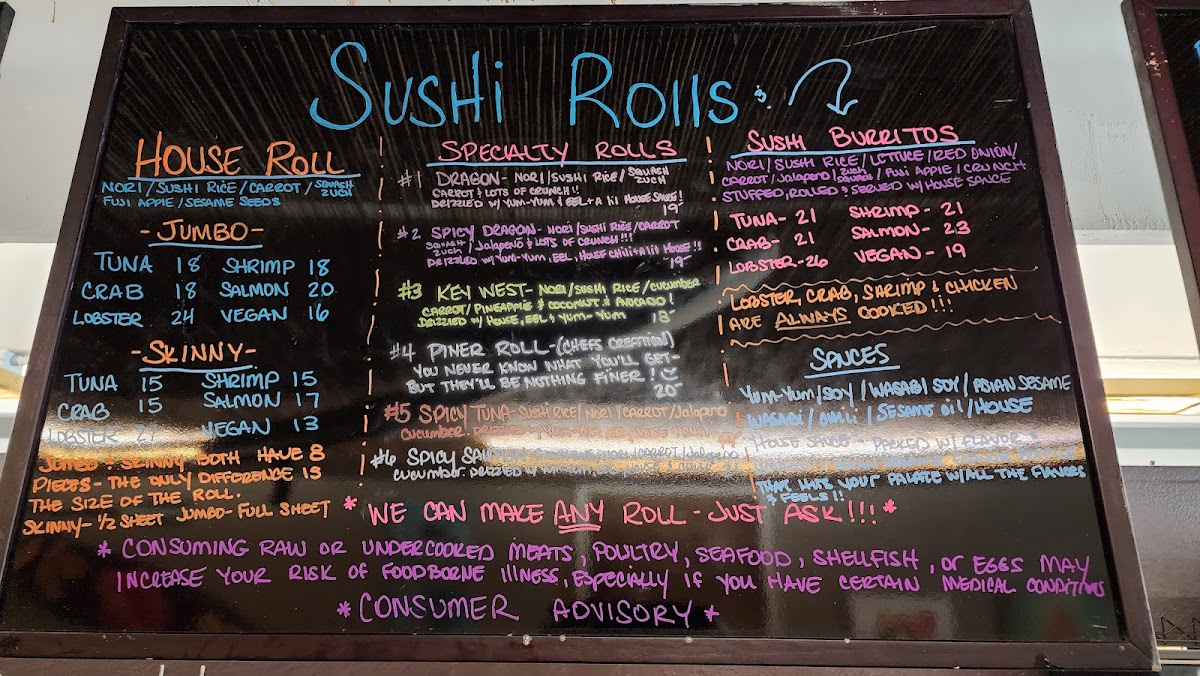 Sushi Rolls &
House Roll
Nori / Sushi Rice / Carrot / Squash Zuch
Fuji Apple / Sesame Seeds
- Jumbo -
Tuna 18 Shrimp 18
Crab 18 Salmon 20
Lobster 24 Vegan 16
- Skinny -
Tuna 15 Shrimp 15
Crab 15 Salmon 17
Lobster Vegan 13
Jumbo & Skinny both have 8
pieces - the only difference is
the size of the roll.
Skinny - 1/2 sheet Jumbo - full sheet
Specialty Rolls
#1 Dragon - Nori / Sushi Rice / Squash Zuch
Carrot & lots of crunch!!
Drizzled w/ Yum-Yum & Eel + a lil House Sauce!
19-
#2 Spicy Dragon - Nori / Sushi Rice / Carrot
Squash Zuch / Jalapeno & lots of crunch!!!
Drizzled w/ Yum-Yum, Eel, House Chili + a lil House!!
19-
#3 Key West - Nori / Sushi Rice / Cucumber
Carrot / Pineapple & Coconut & Avocado!
Drizzled w/ House, Eel & Yum-Yum 18-
#4 Piner Roll - (Chefs Creation)
You never know what you'll get -
but they'll be nothing finer!
20-
#5 Spicy Tuna - Sushi Rice / Nori / Carrot / Jalapeno
Cucumber. Drizzled w/
#6 Spicy / Carrot / Jalapeno
Cucumber. Drizzled w/ Yum-Yum, Eel, House &
Sushi Burritos
Nori / Sushi Rice / Lettuce / Red Onion /
Carrot / Jalapeno / Zuch Squash / Fuji Apple / Crunch
Stuffed, Rolled & Served w/ House Sauce
Tuna - 21 Shrimp - 21
Crab - 21 Salmon - 23
Lobster - 26 Vegan - 19
Lobster, Crab, Shrimp & Chicken
are ALWAYS cooked!!!
Sauces
Yum-Yum / Soy / Wasabi Soy / Asian Sesame
Wasabi / Chili / Sesame Oil / House
House Sauce - packed w/ flavor &
that hits your palate w/ all the flavors
& feels!!
* We can make ANY roll - Just ask!!! *
* Consuming raw or undercooked meats, poultry, seafood, shellfish, or eggs may
increase your risk of foodborne illness, especially if you have certain medical conditions
* Consumer Advisory *